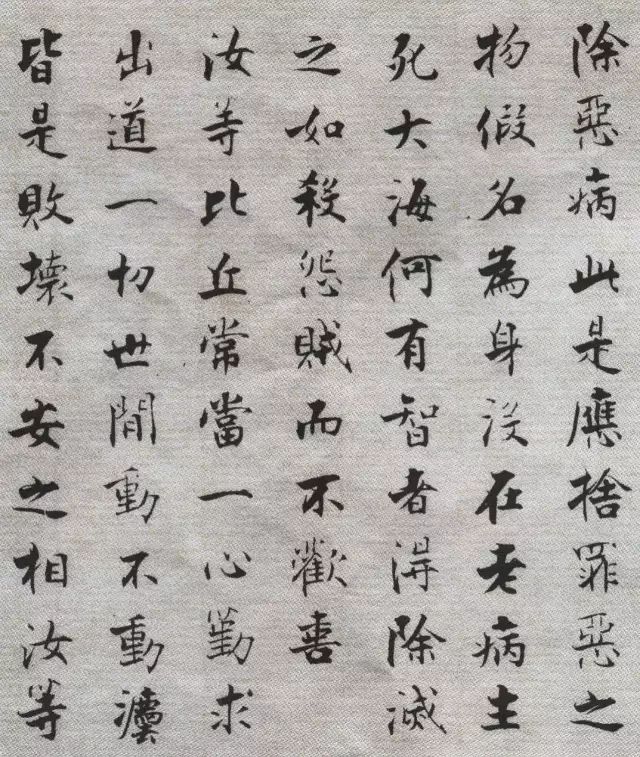 除惡病此是應捨罪惡之
物假名為身沒在老病生
死大海何有智者得除滅
之如殺怨賊而不歡喜
汝等比丘常當一心勤求
出道一切世間動不動灋
皆是敗壞不安之相汝等